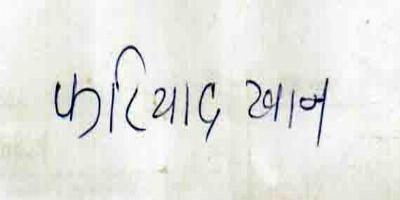 फरियाद खान